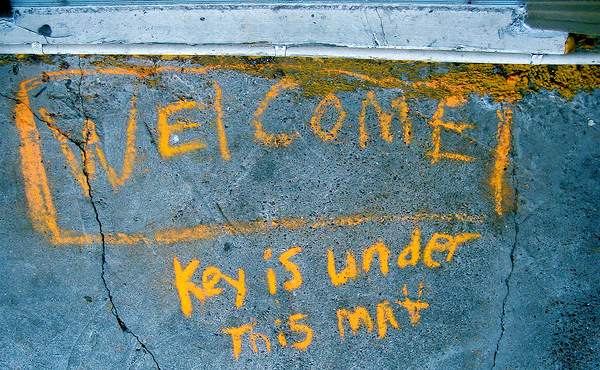 WELCOME
Key is under
this mat